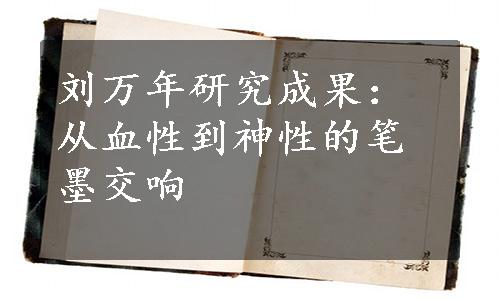 刘万年研究成果：
从血性到神性的笔
墨交响